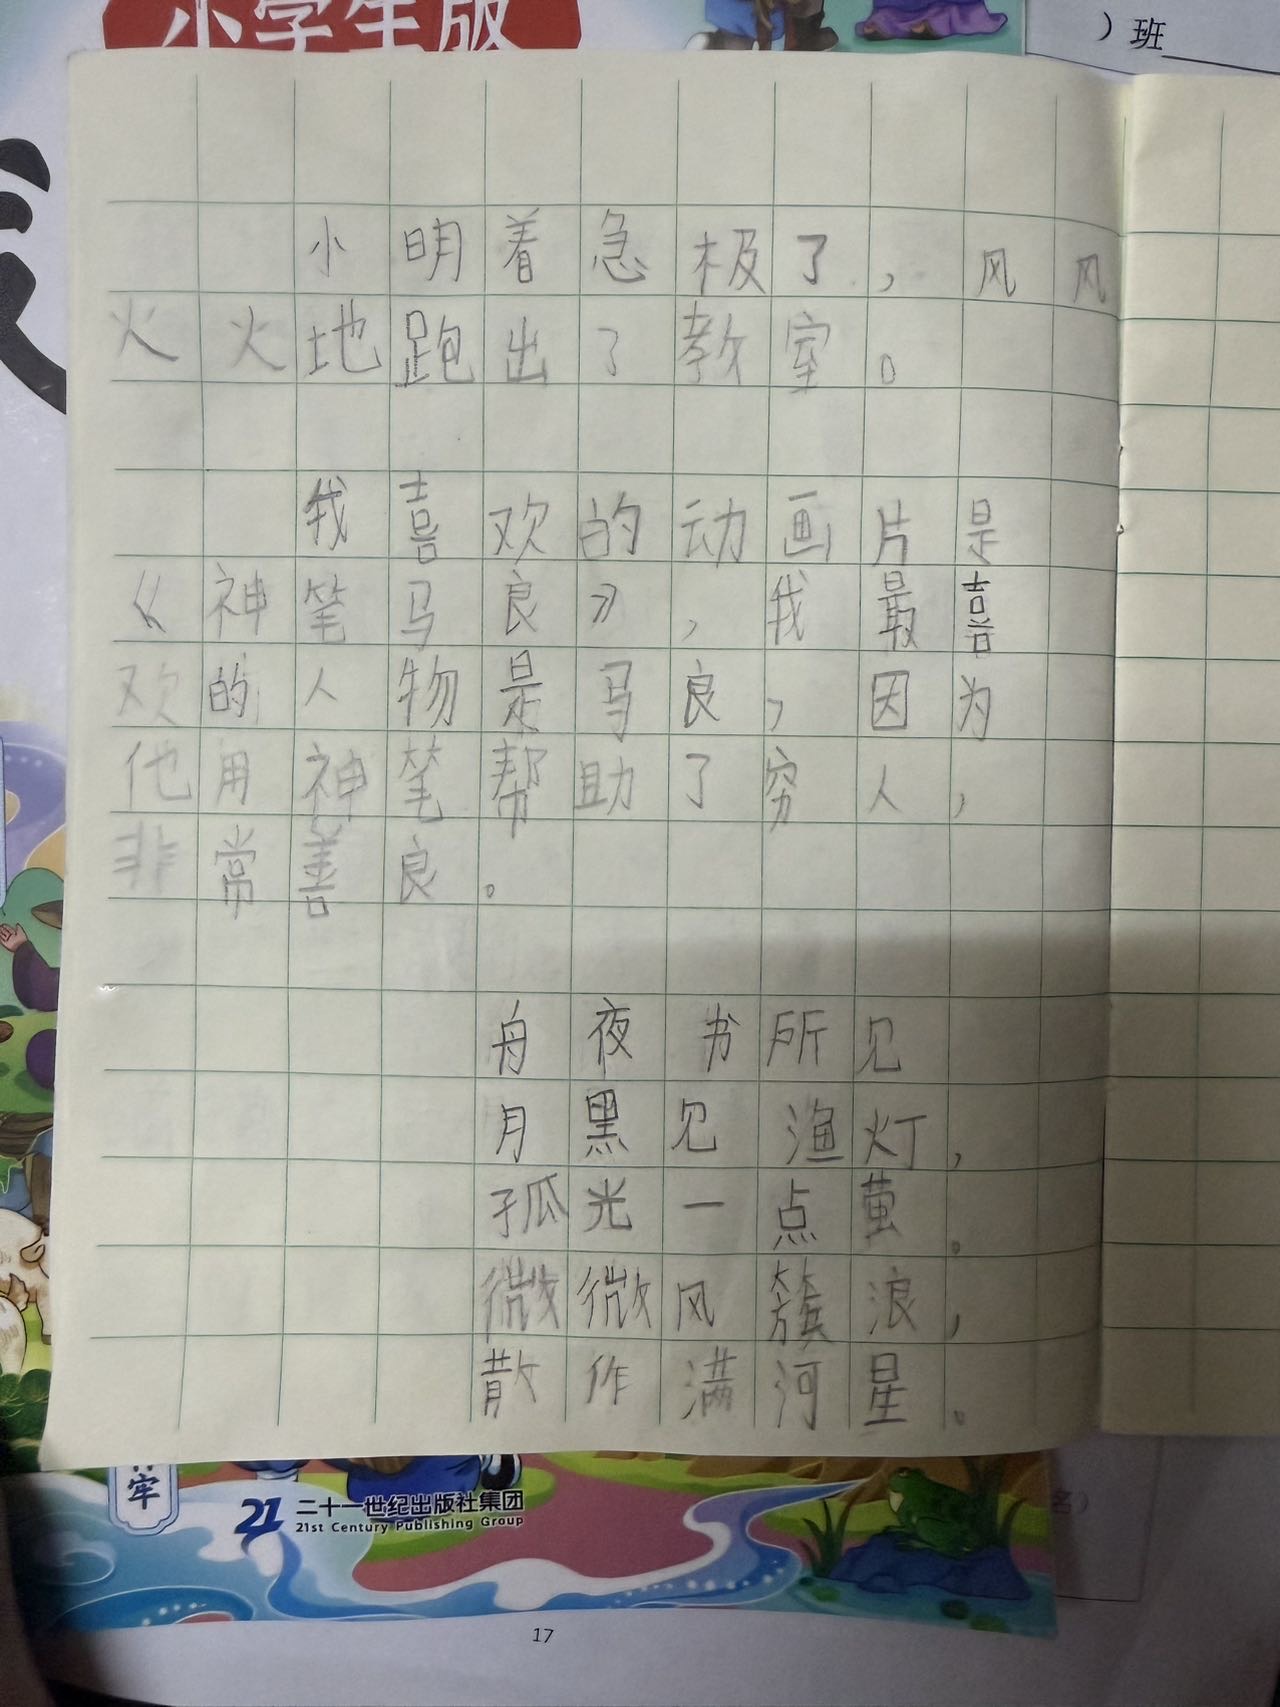 小学生版
）班
小明着急极了，风风
火火地跑出了教室。
我喜欢的动画片是
《神笔马良》，我最喜
欢的人物是马良，因为
他用神笔帮助了穷人，
非常善良。
舟夜书所见
月黑见渔灯，
孤光一点萤。
微微风簇浪，
散作满河星。
牢
21 二十一世纪出版社集团
21st Century Publishing Group
名）
17